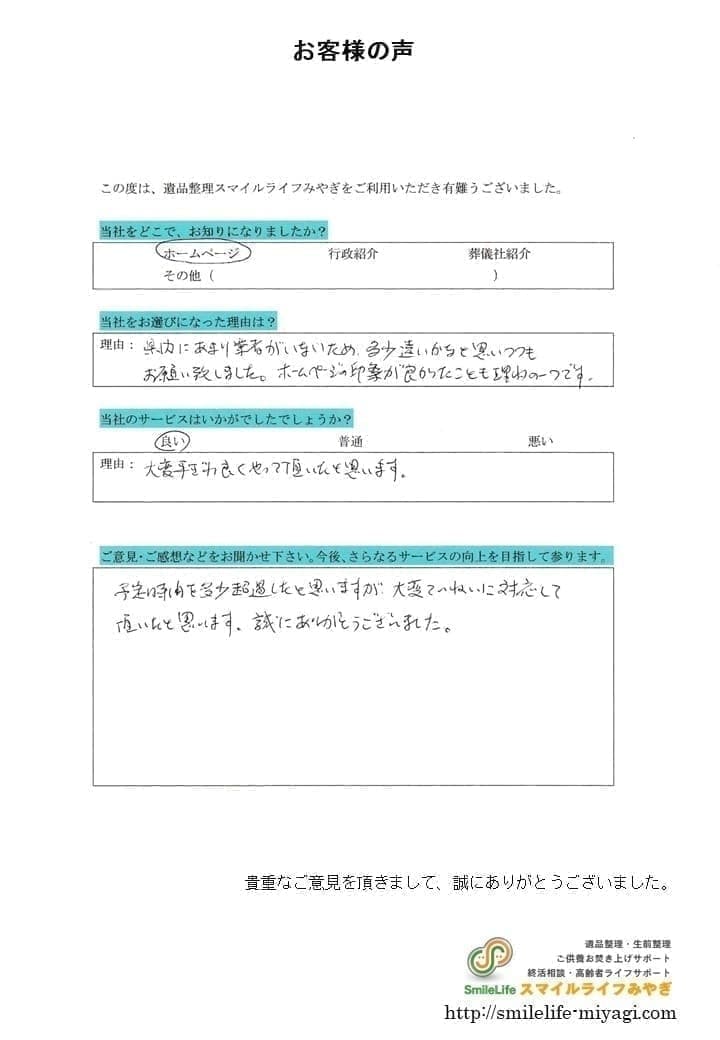 お客様の声
この度は、遺品整理スマイルライフみやぎをご利用いただき有難うございました。
当社をどこで、お知りになりましたか？
ホームページ 行政紹介 葬儀社紹介
その他（ ）
当社をお選びになった理由は？
理由： 県内にあまり業者がいないため、多少遠いかなと思いつつも
お願い致しました。ホームページの印象が良かったことも理由の一つです。
当社のサービスはいかがでしたでしょうか？
良い 普通 悪い
理由： 大変手ぎわ良くやって頂いたと思います。
ご意見・ご感想などをお聞かせ下さい。今後、さらなるサービスの向上を目指して参ります。
予定時間を多少超過したと思いますが、大変ていねいに対応して
頂いたと思います。誠にありがとうございました。
貴重なご意見を頂きまして、誠にありがとうございました。
遺品整理・生前整理
ご供養お焚き上げサポート
終活相談・高齢者ライフサポート
SmileLife スマイルライフみやぎ
http://smilelife-miyagi.com